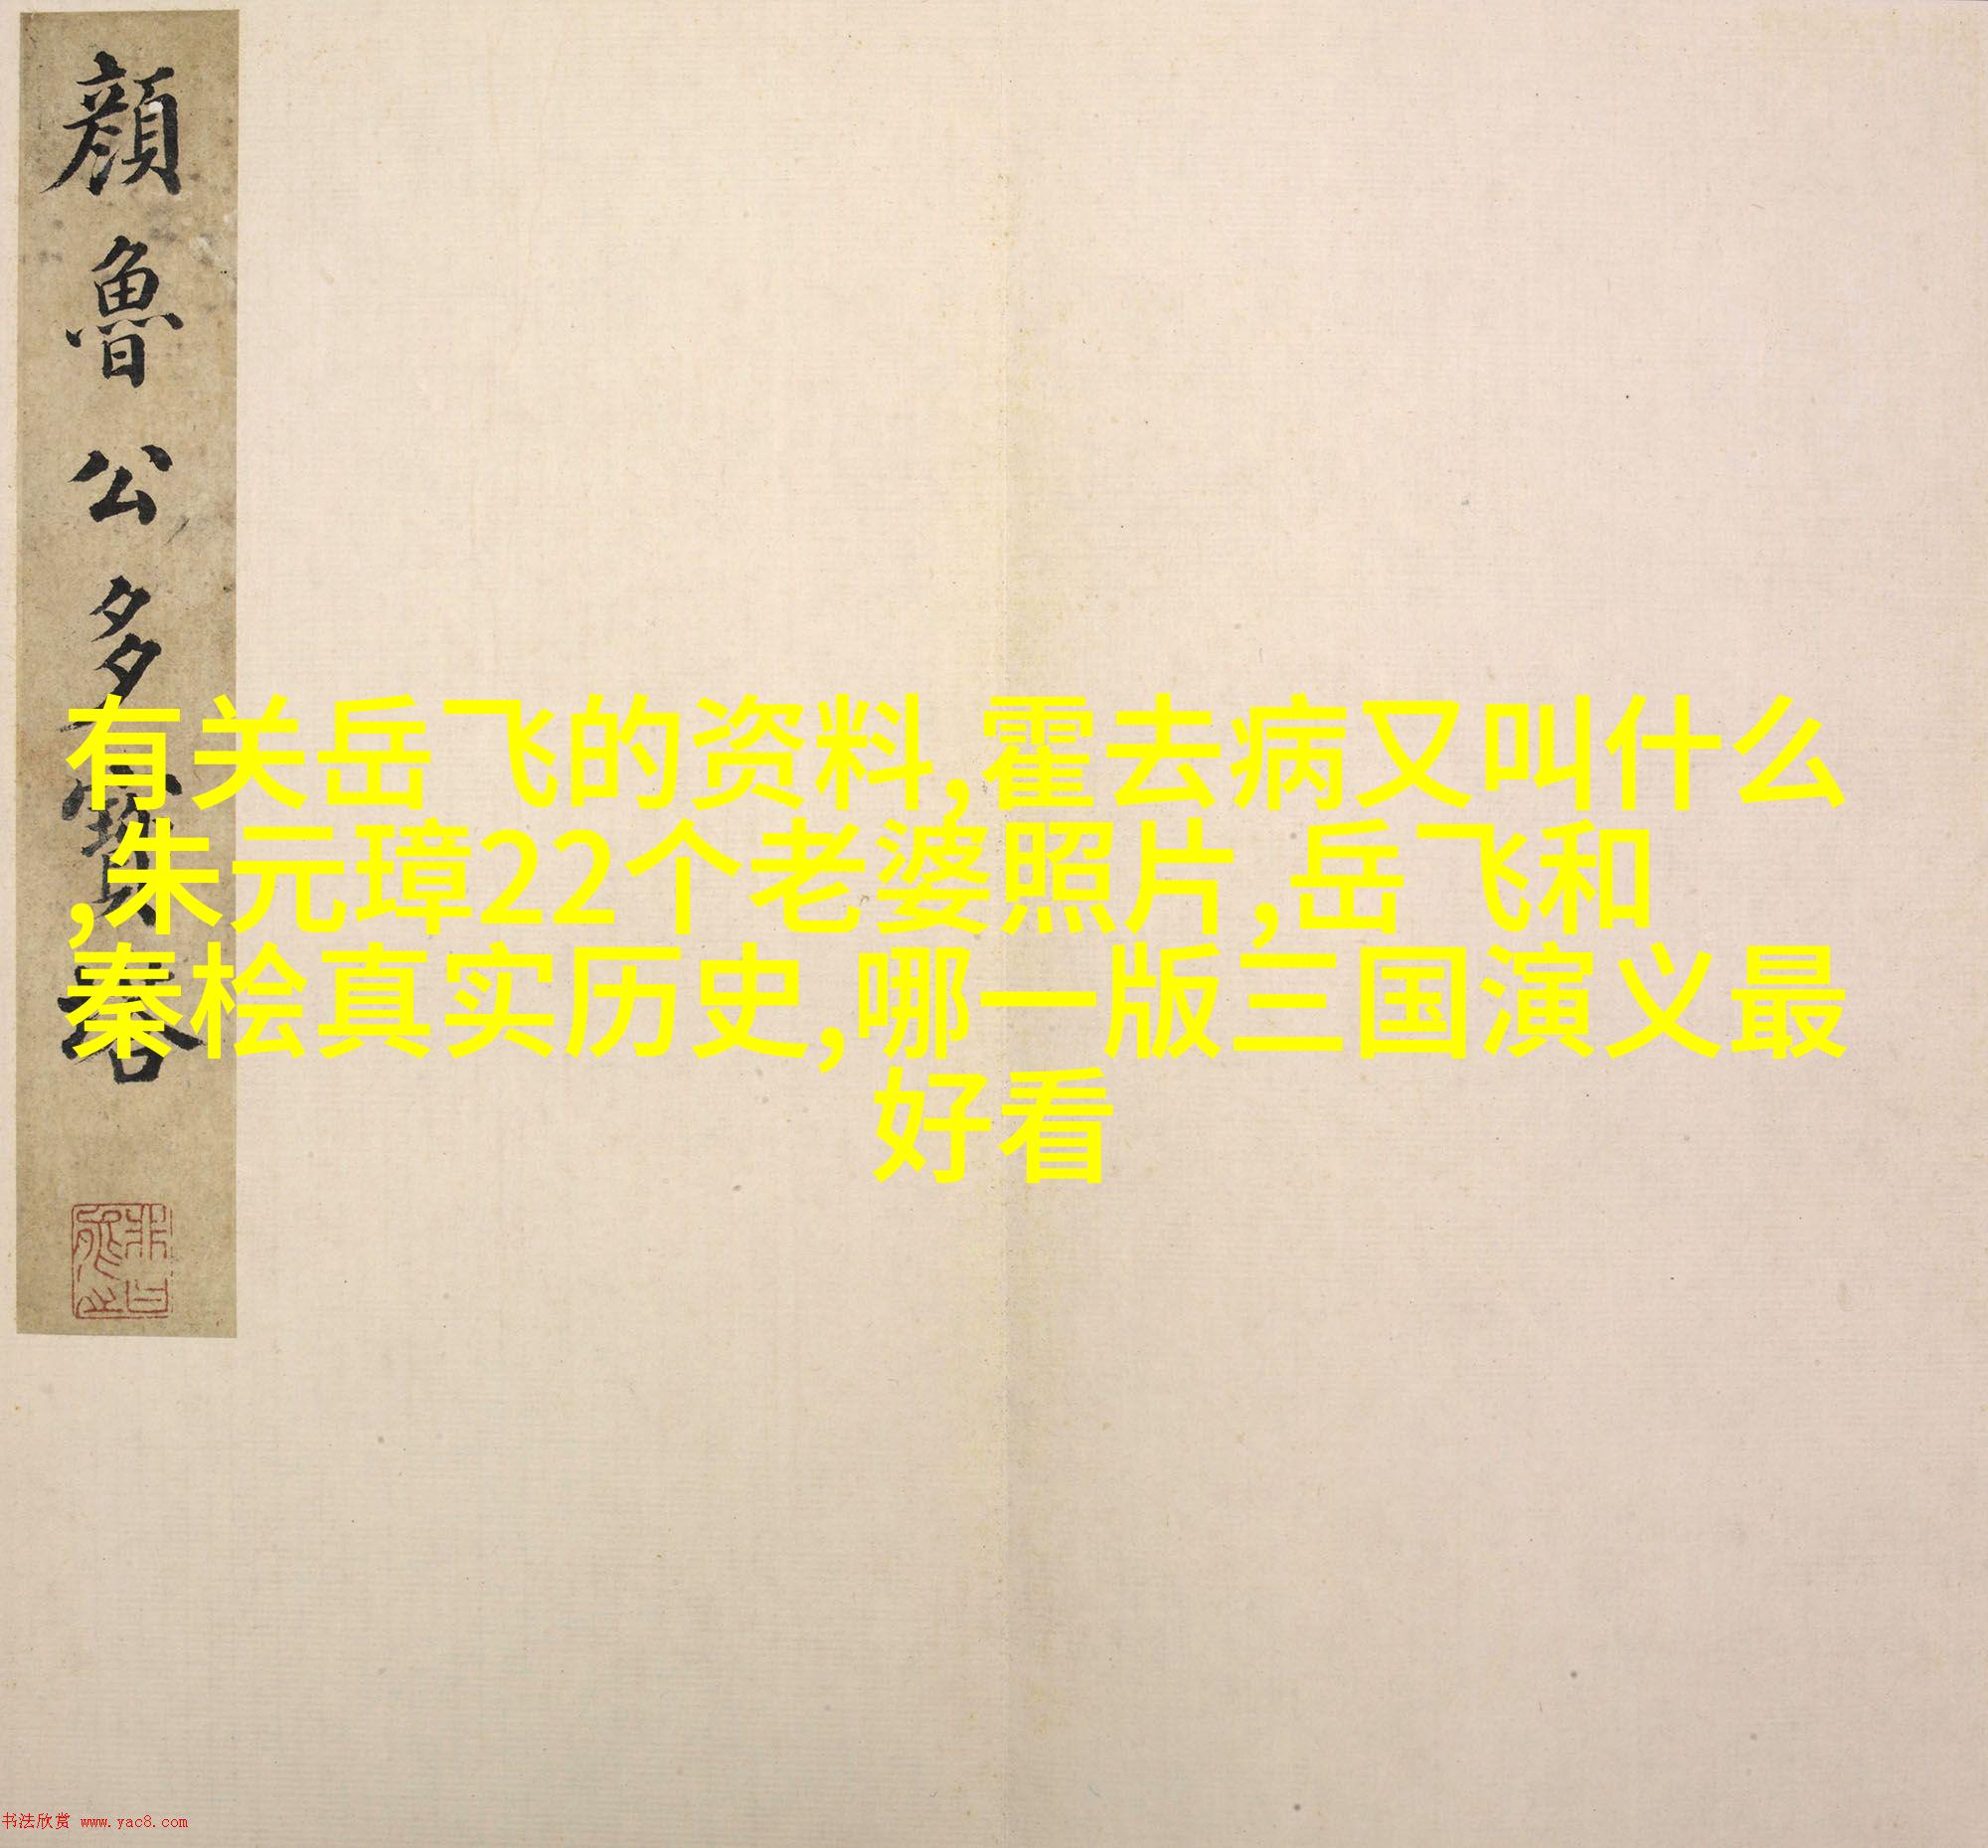 顔魯公多寶塔
有关岳飞的资料,霍去病又叫什么
,朱元璋22个老婆照片,岳飞和
秦桧真实历史,哪一版三国演义最
好看
书法欣赏 www.yac8.com